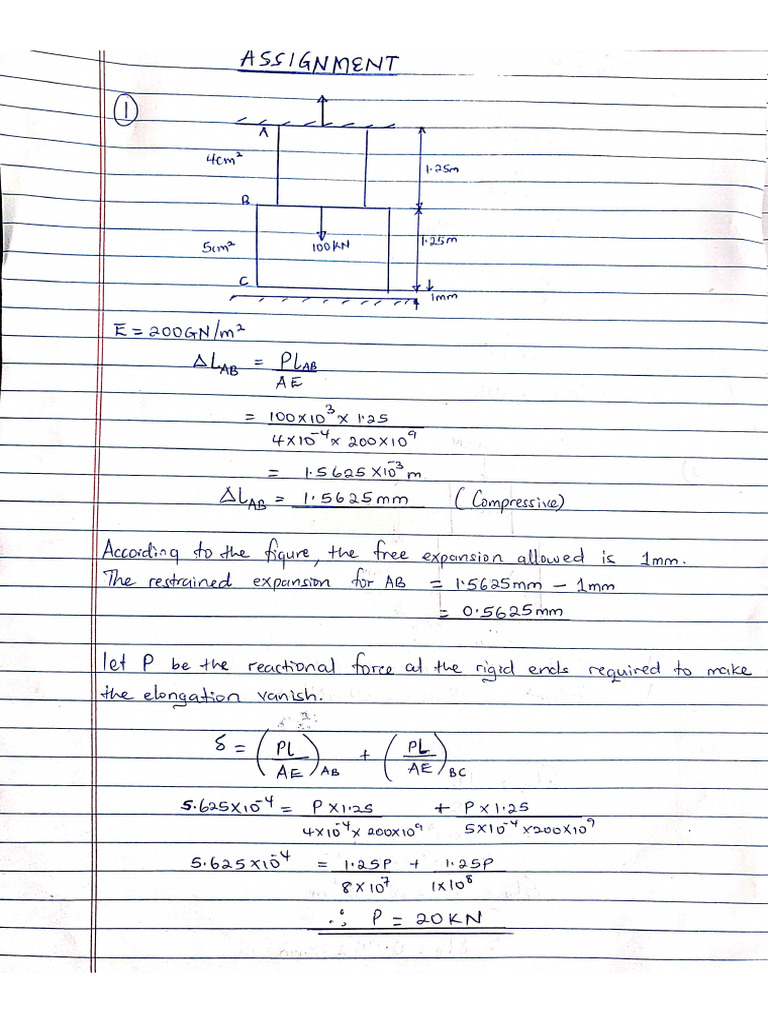 ASSIGNMENT
1
A
4cm²
1.25m
B
5cm²
100KN
1.25m
C
1mm
E = 200GN/m²
ΔL_AB = PL_AB / AE
= 100×10³ × 1.25 / 4×10⁻⁴ × 200×10⁹
= 1.5625 ×10⁻³ m
ΔL_AB = 1.5625mm (Compressive)
According to the figure, the free expansion allowed is 1mm.
The restrained expansion for AB = 1.5625mm – 1mm
= 0.5625mm
let P be the reactional force at the rigid ends required to make
the elongation vanish.
δ = (PL / AE)_AB + (PL / AE)_BC
5.625×10⁻⁴ = P×1.25 / 4×10⁻⁴ × 200×10⁹ + P×1.25 / 5×10⁻⁴ ×200×10⁹
5.625×10⁻⁴ = 1.25P / 8×10⁷ + 1.25P / 1×10⁸
∴ P = 20KN